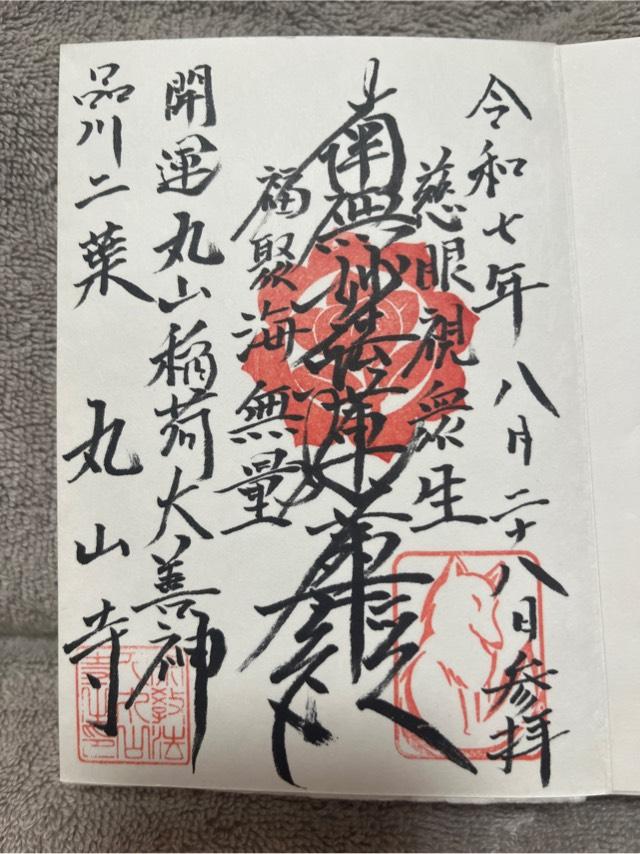 令和七年八月二十八日参拝
慈眼視衆生
南無妙法蓮華経
福聚海無量
開運丸山稲荷大善神
品川二葉 丸山寺